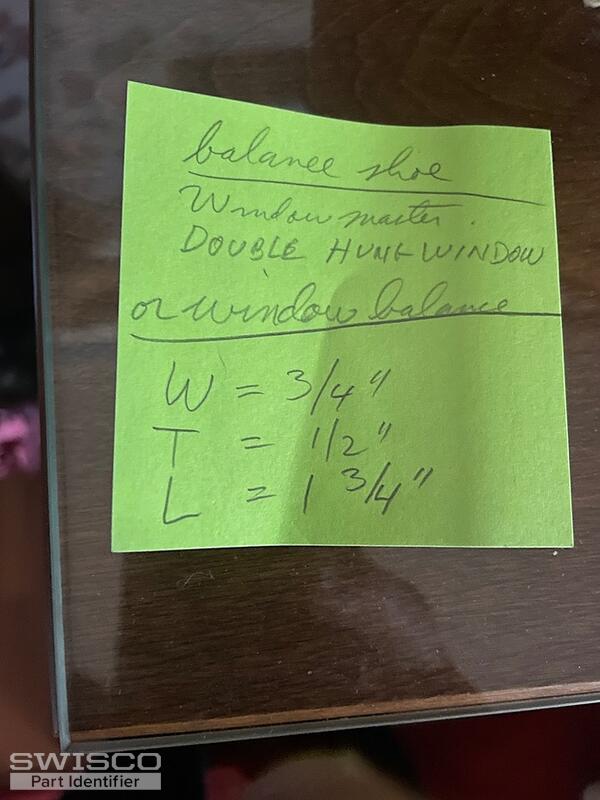 balance shoe
Window master.
DOUBLE HUNG WINDOW
or window balance
W = 3/4"
T = 1/2"
L = 1 3/4"
SWISCO
Part Identifier